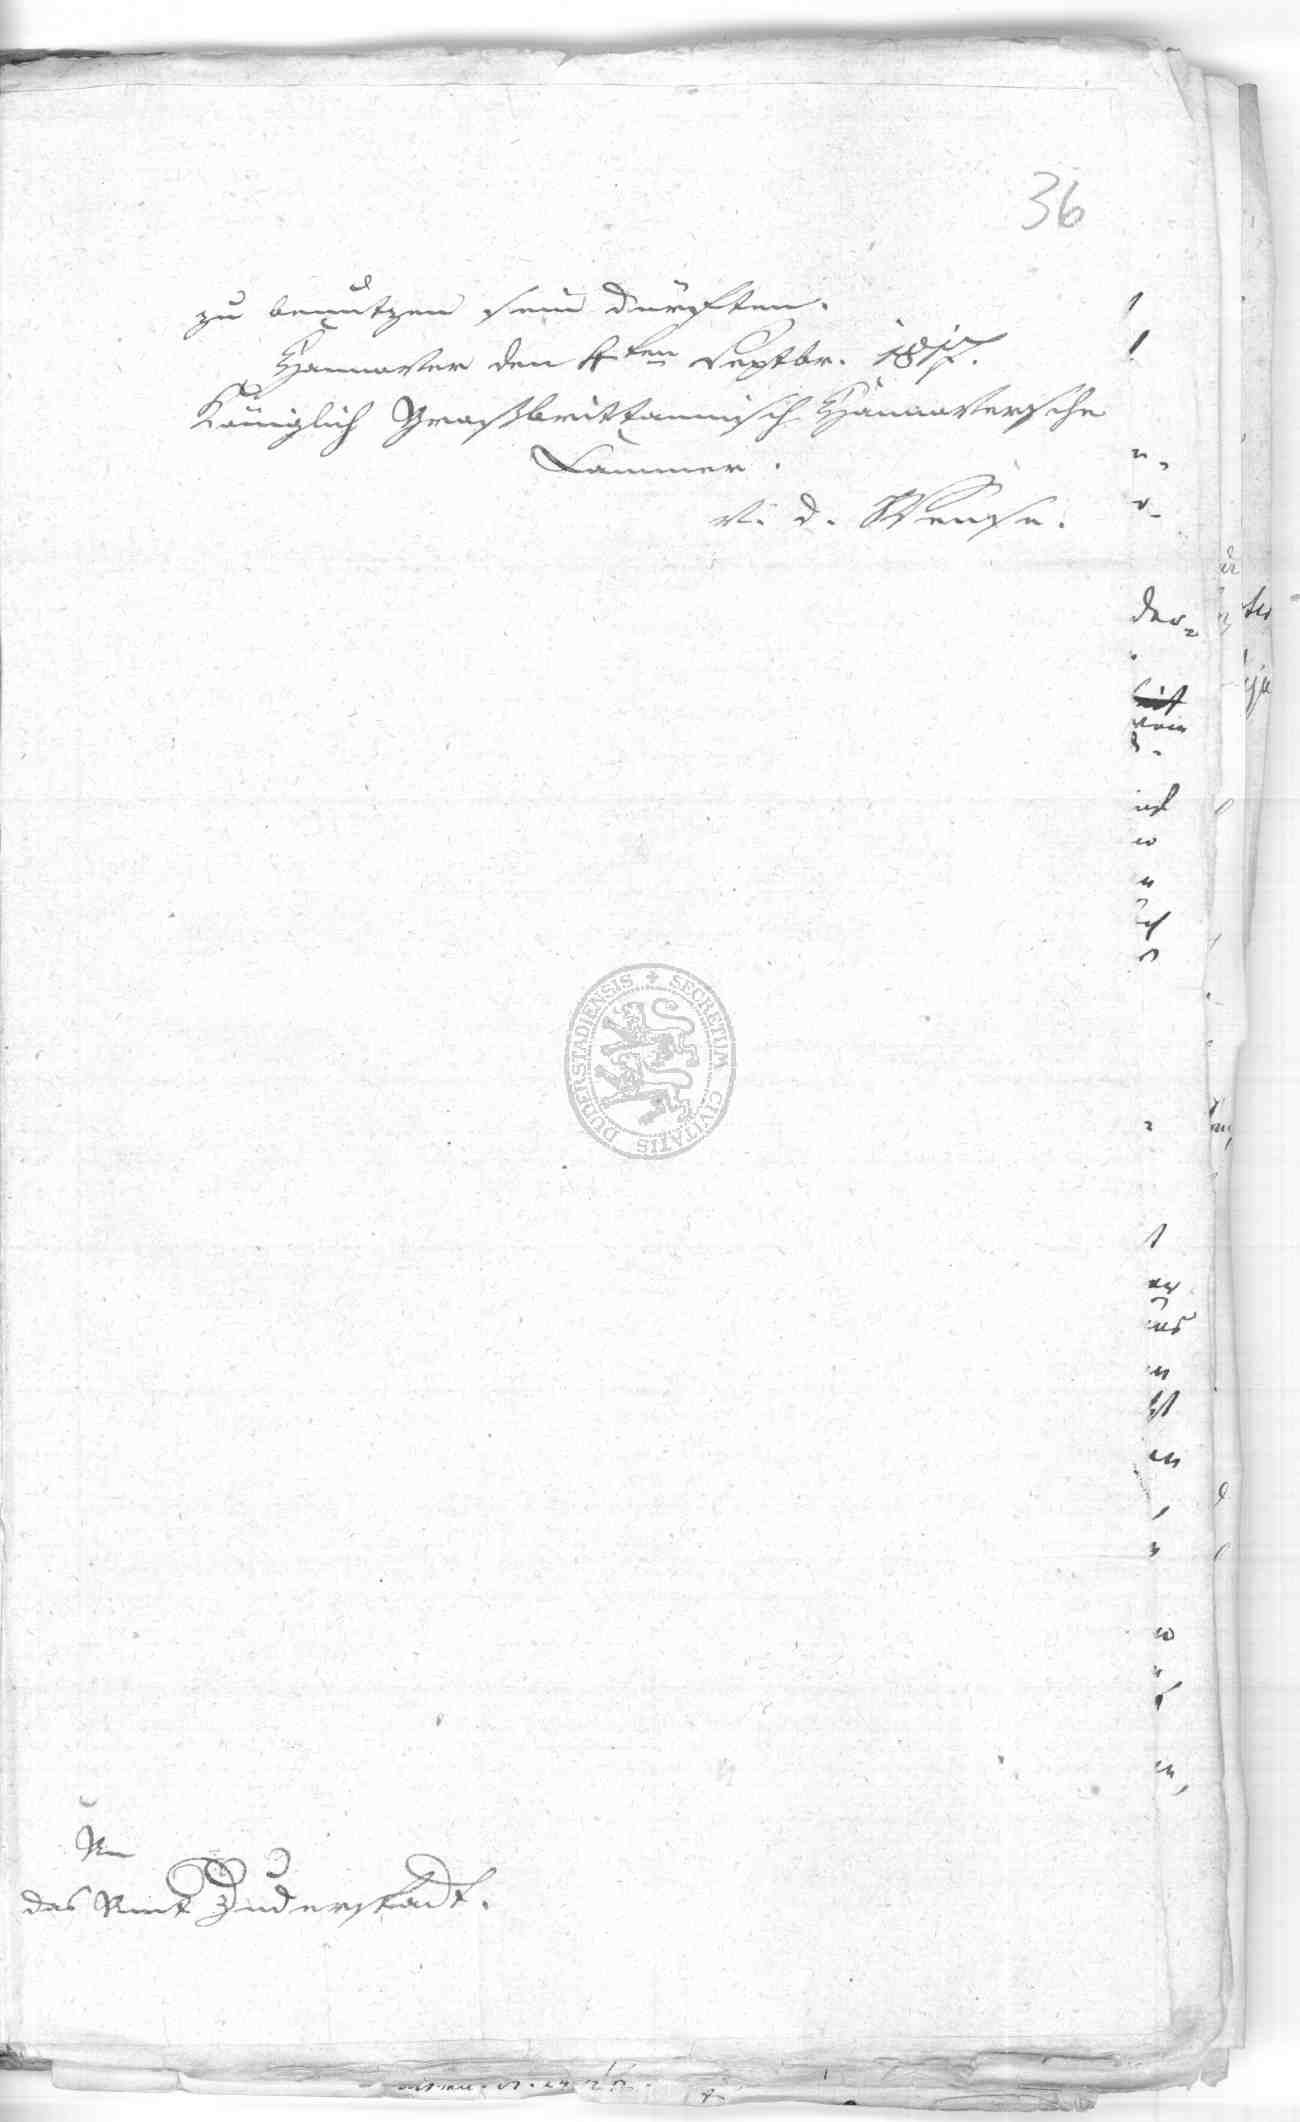 36
zu benutzen sein dürften.
Hannover den 4ten Septbr. 1817.
Königlich Großbrittannisch Hannoversche
Cammer.
v. d. Wense.
SECRETUM CIVITATIS DUDERSTADIENSIS
An
das Amt Duderstadt.